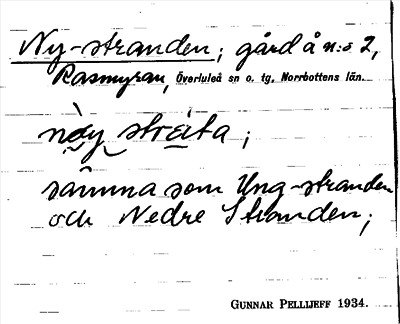 Ny-stranden; gård å n:o 2,
Rasmyran, Överluleå sn o. tg, Norrbottens län.
nə̀y streta;
samma som Ung-stranden
och Nedre Stranden;
GUNNAR PELLIJEFF 1934.